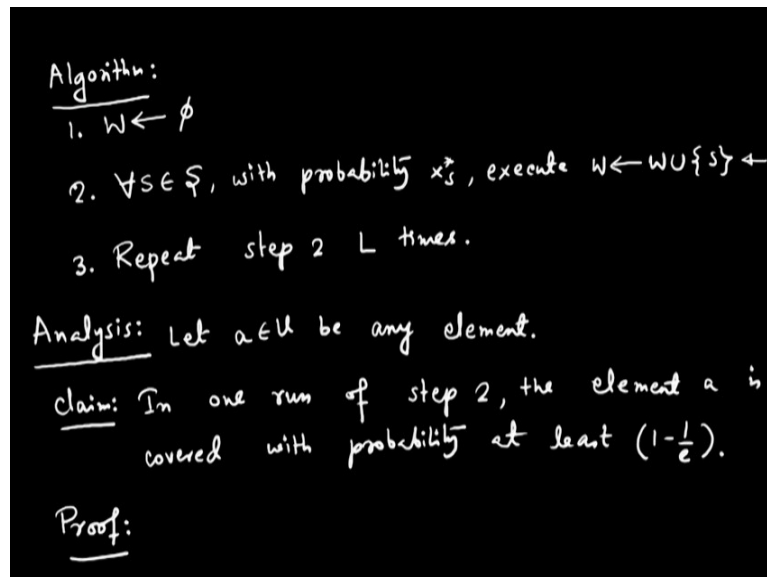 Algorithm:
1. W ← ϕ
2. ∀S ∈ S, with probability x*_S, execute W ← W ∪ {S} ←
3. Repeat step 2 L times.
Analysis: Let a ∈ U be any element.
Claim: In one run of step 2, the element a is
covered with probability at least (1 - 1/e).
Proof: